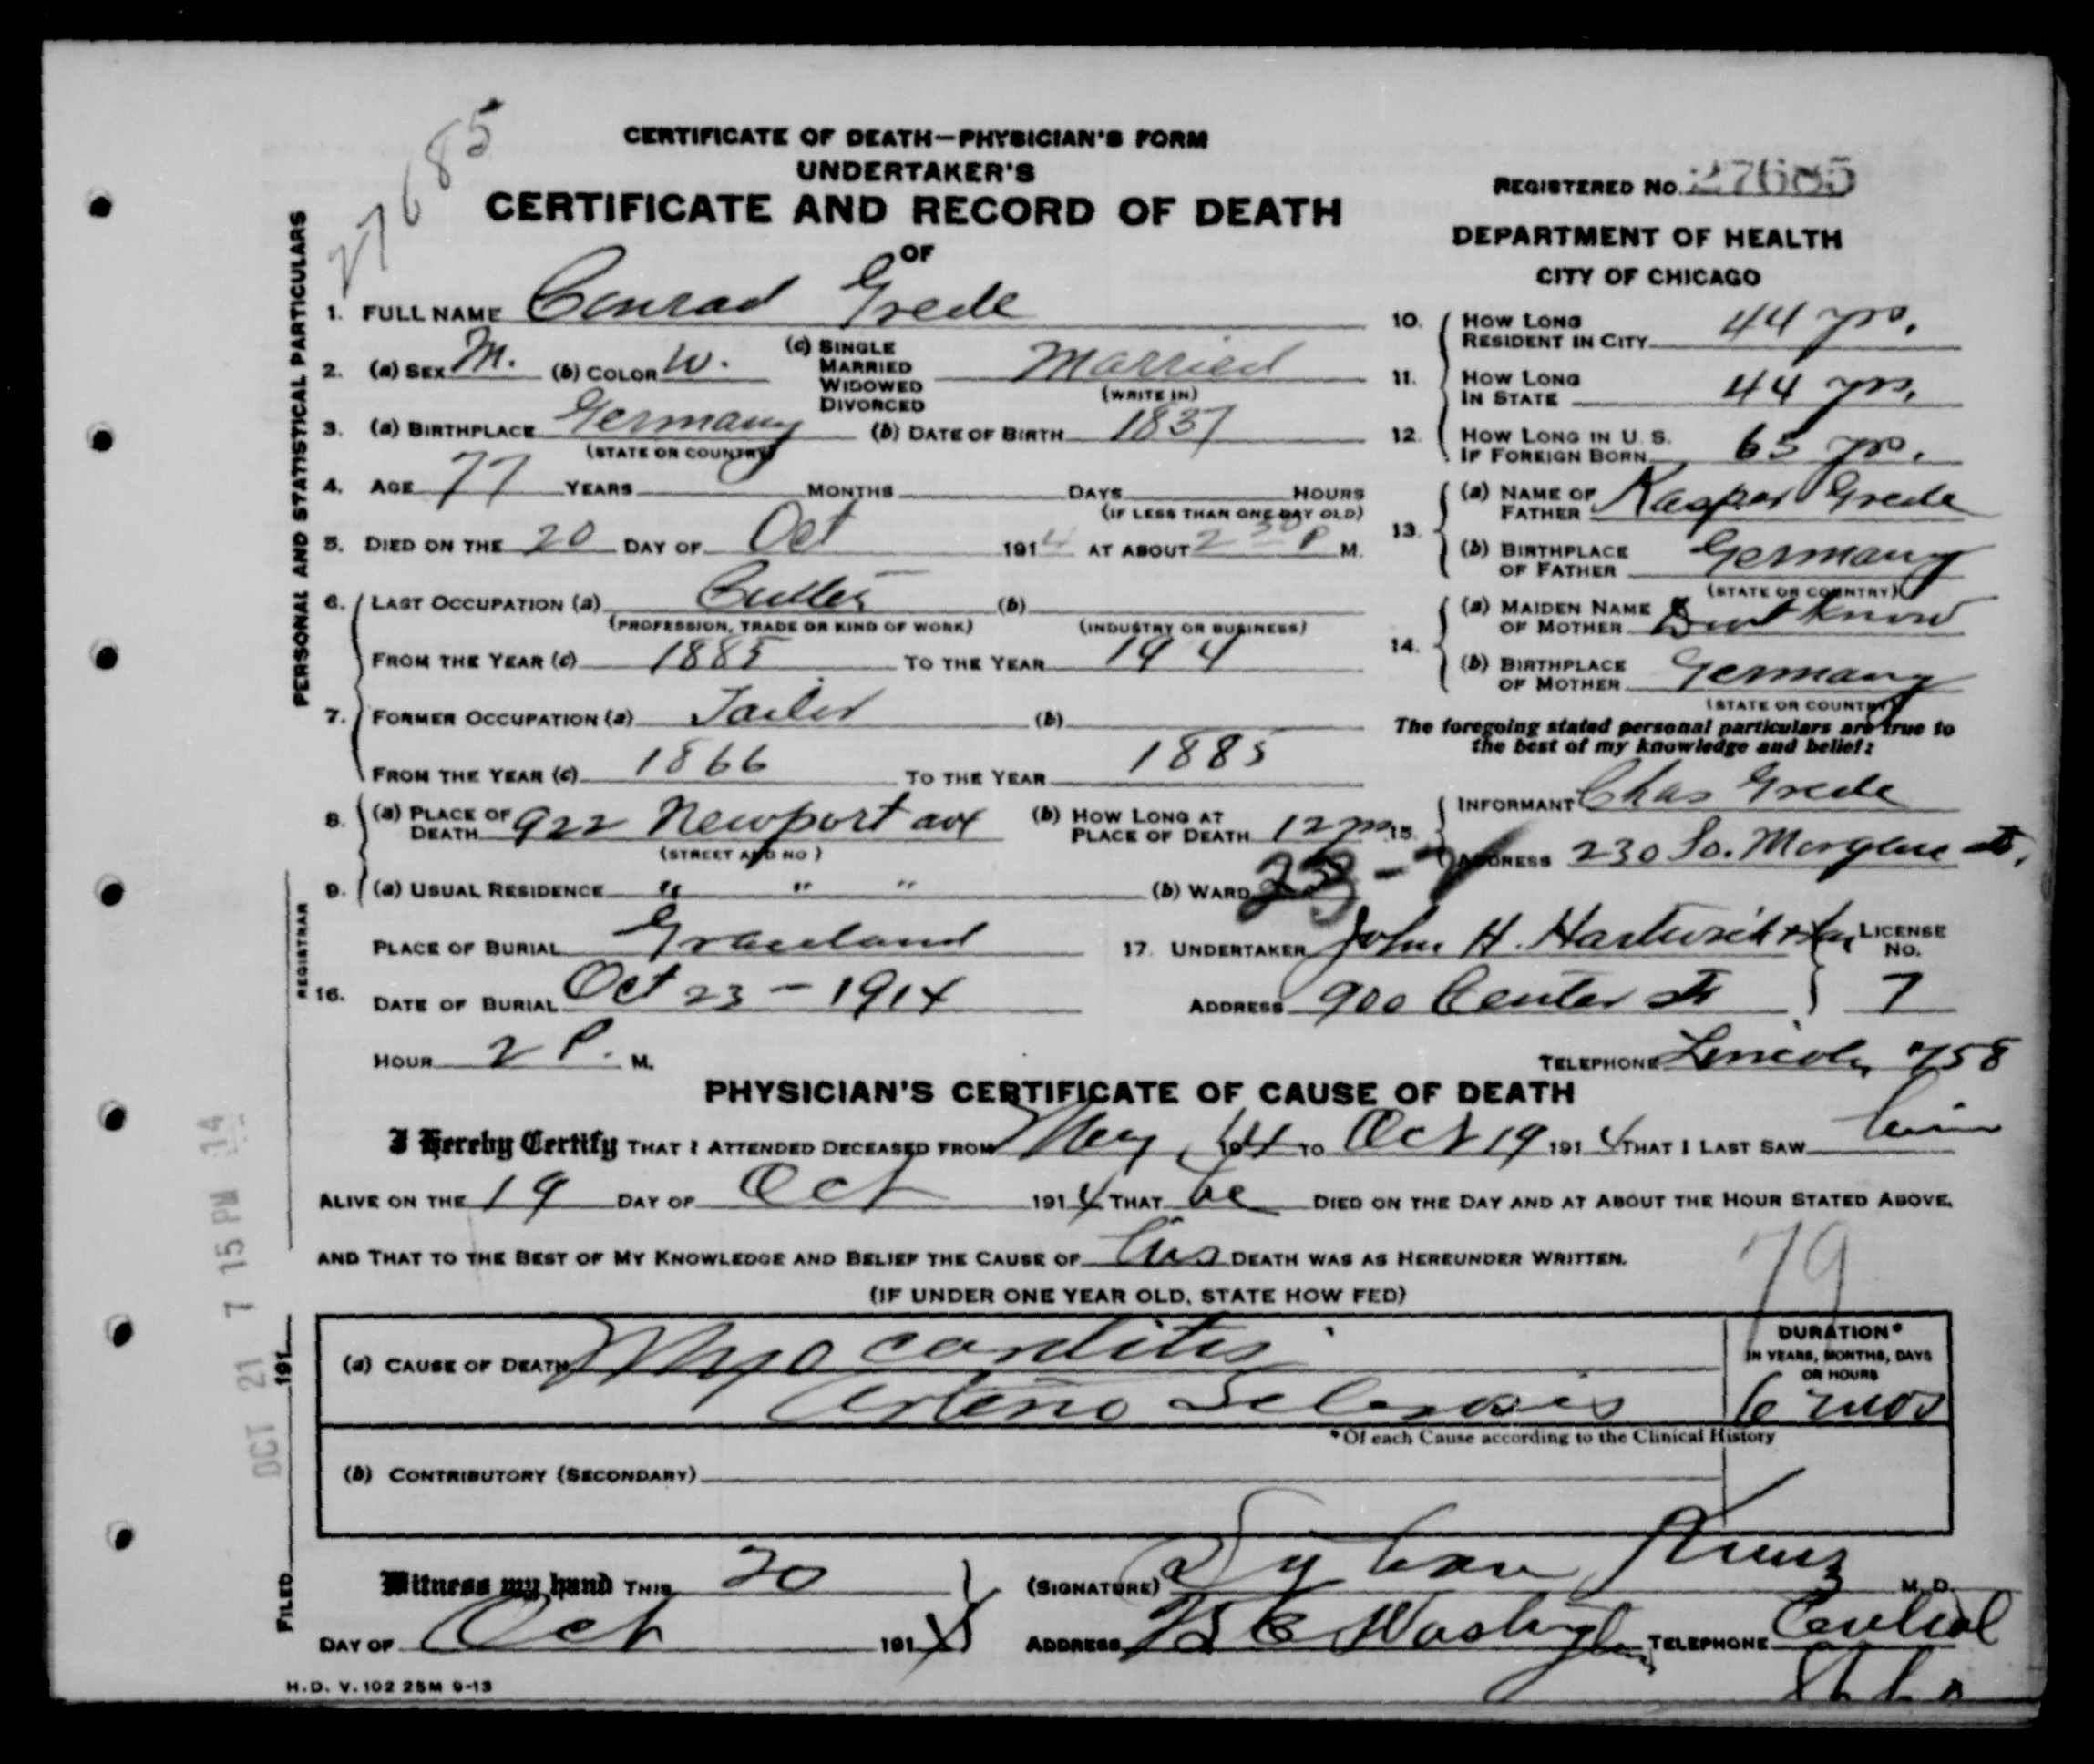 27685
CERTIFICATE OF DEATH—PHYSICIAN'S FORM
UNDERTAKER'S
CERTIFICATE AND RECORD OF DEATH
OF
REGISTERED NO. 27685
DEPARTMENT OF HEALTH
CITY OF CHICAGO
PERSONAL AND STATISTICAL PARTICULARS
1. FULL NAME Conrad Grede
2. (a) SEX M. (b) COLOR W. (c) SINGLE MARRIED WIDOWED DIVORCED Married
(WRITE IN)
3. (a) BIRTHPLACE Germany (b) DATE OF BIRTH 1837
(STATE OR COUNTRY)
4. AGE 77 YEARS MONTHS DAYS HOURS
(IF LESS THAN ONE DAY OLD)
5. DIED ON THE 20 DAY OF Oct 1914 AT ABOUT 2 30 P M.
6. LAST OCCUPATION (a) Cutter (b)
(PROFESSION, TRADE OR KIND OF WORK) (INDUSTRY OR BUSINESS)
FROM THE YEAR (c) 1885 TO THE YEAR 19 4
7. FORMER OCCUPATION (a) Tailor (b)
FROM THE YEAR (c) 1866 TO THE YEAR 1885
8. (a) PLACE OF DEATH 922 Newport ave (b) HOW LONG AT PLACE OF DEATH 12 yrs
(STREET AND NO)
9. (a) USUAL RESIDENCE " " " (b) WARD
10. HOW LONG RESIDENT IN CITY 44 yrs.
11. HOW LONG IN STATE 44 yrs.
12. HOW LONG IN U. S. IF FOREIGN BORN 65 yrs.
13. (a) NAME OF FATHER Kasper Grede
(b) BIRTHPLACE OF FATHER Germany
(STATE OR COUNTRY)
14. (a) MAIDEN NAME OF MOTHER Dont Know
(b) BIRTHPLACE OF MOTHER Germany
(STATE OR COUNTRY)
The foregoing stated personal particulars are true to
the best of my knowledge and belief:
15. INFORMANT Chas Grede
ADDRESS 230 So. Morgan St.
REGISTRAR
PLACE OF BURIAL Graceland
16. DATE OF BURIAL Oct 23 - 1914
HOUR 2 P. M.
17. UNDERTAKER John H. LICENSE NO.
ADDRESS 900 Center St 7
TELEPHONE Lincoln 758
PHYSICIAN'S CERTIFICATE OF CAUSE OF DEATH
I Hereby Certify THAT I ATTENDED DECEASED FROM May 1914 TO Oct 19 1914 THAT I LAST SAW him
ALIVE ON THE 19 DAY OF Oct 1914 THAT he DIED ON THE DAY AND AT ABOUT THE HOUR STATED ABOVE,
AND THAT TO THE BEST OF MY KNOWLEDGE AND BELIEF THE CAUSE OF his DEATH WAS AS HEREUNDER WRITTEN.
(IF UNDER ONE YEAR OLD, STATE HOW FED)
79
(a) CAUSE OF DEATH Myocarditis
Arterio Sclerosis
DURATION*
IN YEARS, MONTHS, DAYS
OR HOURS
6 mos
*Of each Cause according to the Clinical History
(b) CONTRIBUTORY (SECONDARY)
Witness my hand THIS 20
DAY OF Oct 1914
(SIGNATURE) M. D.
ADDRESS 25 E Washington TELEPHONE Central
FILED 191
OCT 21 7 15 PM 14
H. D. V. 102 25M 9-13